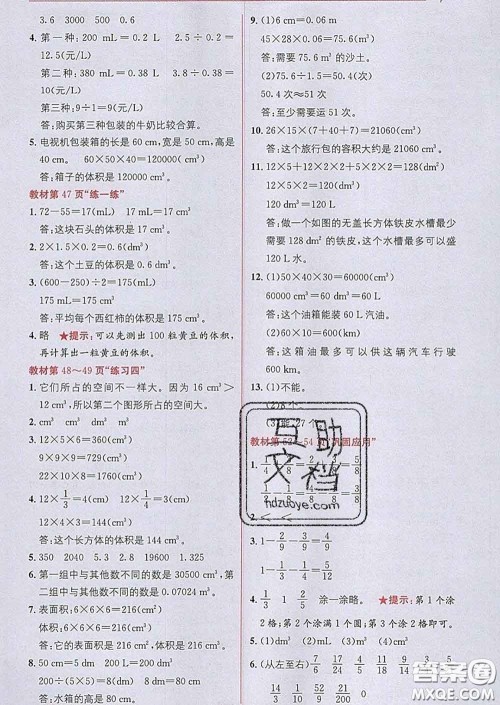 3.6 3000 500 0.6
4. 第一种：200 mL＝0.2 L 2.5÷0.2＝
12.5(元/L)
第二种：380 mL＝0.38 L 3.8÷0.38＝
10(元/L)
第三种：9÷1＝9(元/L)
答：购买第三种包装的牛奶比较合算。
5. 电视机包装箱的长是60 cm，宽是50 cm，高是
40 cm。 60×50×40＝120000(cm³)
答：箱子的体积是120000 cm³。
教材第47页“练一练”
1. 72－55＝17(mL) 17 mL＝17 cm³
答：这块石头的体积是17 cm³。
2. 2×1.5×0.2＝0.6(dm³)
答：这个土豆的体积是0.6 dm³。
3. (600－250)÷2＝175(mL)
175 mL＝175 cm³
答：平均每个西红柿的体积是175 cm³。
4. 略 ★提示：可以先测出100粒黄豆的体积，
再计算出一粒黄豆的体积。
教材第48～49页“练习四”
1. 它们所占的空间不一样大。因为16 cm³＞
12 cm³，所以第二个图形所占的空间大。
2. dm³ cm³ m³ dm³
3. 12×5×6＝360(cm³)
9×9×9＝729(cm³)
22×10×8＝1760(cm³)
4. 12×1/3＝4(cm) 12×1/4＝3(cm)
12×4×3＝144(cm³)
答：这个长方体的体积是144 cm³。
5. 350 2040 5.3 2.8 19600 1.325
6. 第一组中与其他数不同的数是30500 cm³，第
二组中与其他数不同的数是0.07024 m³。
7. 表面积：6×6×6＝216(cm²)
体积：6×6×6＝216(cm³)
答：它的表面积是216 cm²，体积是216 cm³。
8. 50 cm＝5 dm 200 L＝200 dm³
200÷5÷5＝8(dm) 8 dm＝80 cm
答：水箱的高是80 cm。
9. (1)6 cm＝0.06 m
45×28×0.06＝75.6(m³)
答：需要75.6 m³的沙土。
(2)75.6÷1.5＝50.4(次)
50.4次≈51次
答：至少需要运51次。
10. 26×15×(7＋40＋7)＝21060(cm³)
答：这个旅行包的容积大约是21060 cm³。
11. 12×5×2×2＋2×2×2＝128(dm²)
12×5×2＝120(dm³)
120 dm³＝120 L
答：做一个如图的无盖长方体铁皮水槽最少
需要128 dm²的铁皮，这个水槽最多可以盛
120 L水。
12. (1)50×40×30＝60000(cm³)
60000 cm³＝60 L
答：这个油箱能装60 L汽油。
(2)60×10＝600(km)
答：这箱油最多可以供这辆汽车行驶
600 km。
13. (1)不能。
(2)8个 能，27个
教材第52～54页“巩固应用”
1.
3. 1－2/9－3/9＝4/9
1－1/3－1/3＝1/3
4. 1/3 1 2/5 涂一涂略。 ★提示：第1个涂
2格；第2个涂满1个圆；第3个涂4格即可。
5. (1)dm³ (2)mL (3)cm³ (4)m³
6. (从左至右) 7/6
互助
文档
hdzuoye.com
答案圈
MXQE.COM